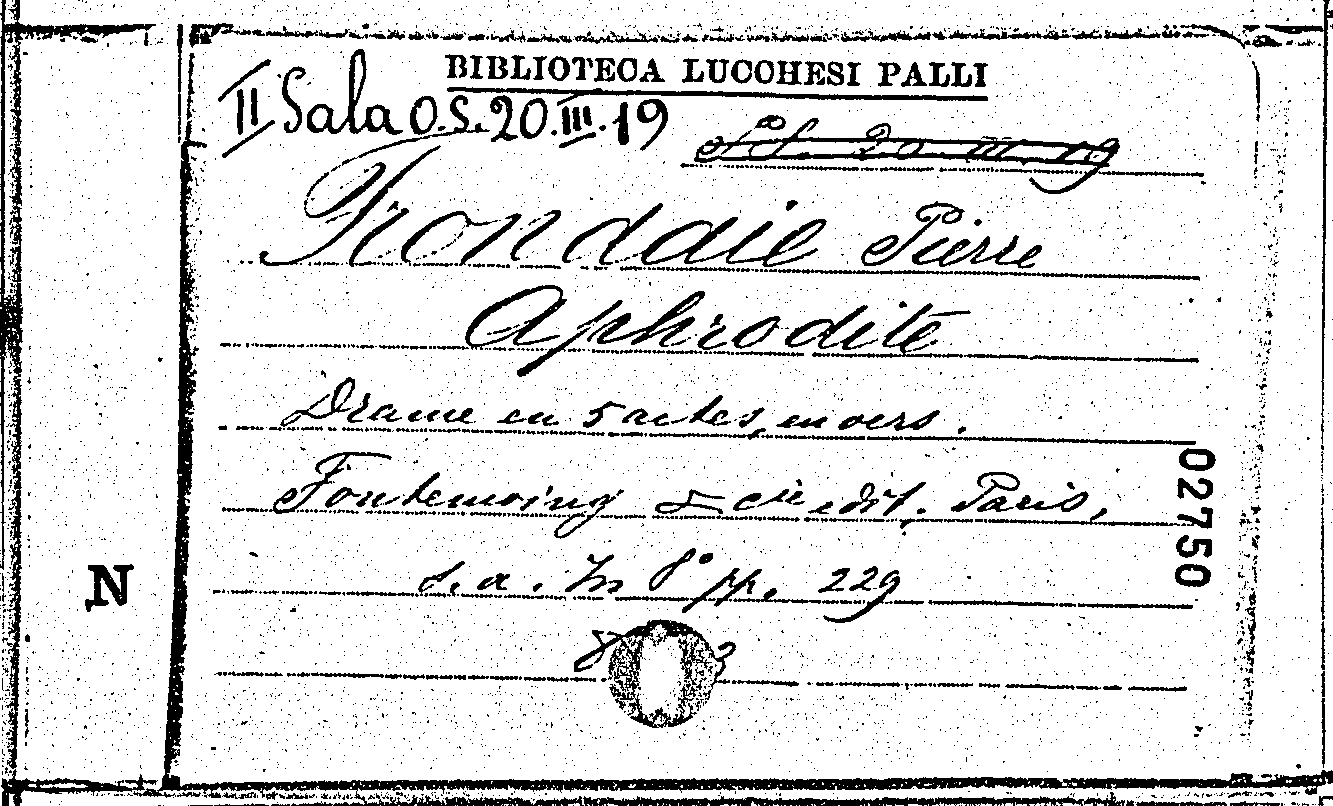 BIBLIOTECA LUCCHESI PALLI
II Sala O.S. 20. III. 19
20 III. 19
Frondaie Pierre
Aphrodite
Drame en 5 actes, en vers.
Fontemoing & cie edit. Paris,
s. a. In 8° pp. 229
02750
N